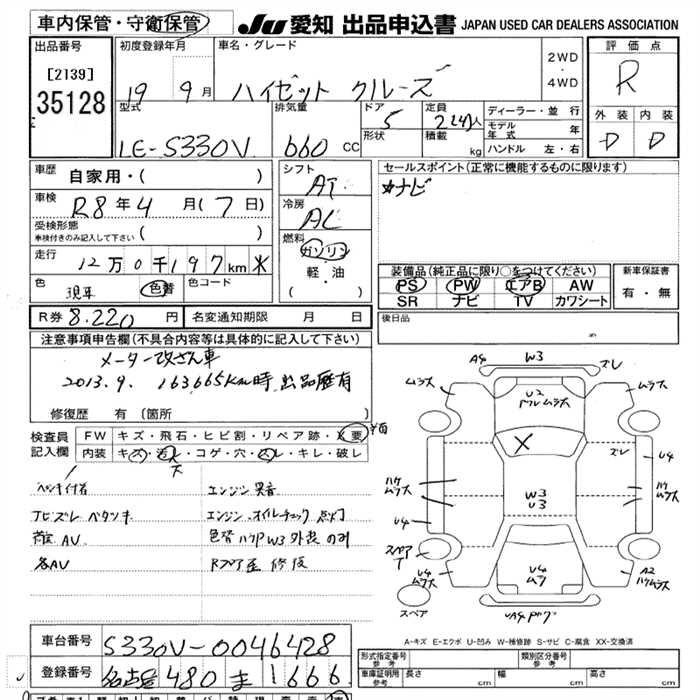 車内保管・守衛保管
JU 愛知 出品申込書 JAPAN USED CAR DEALERS ASSOCIATION
出品番号
[2139]
35128
初度登録年月
19 9月
車名・グレード
ハイゼット クルーズ
2WD
・
4WD
評価点
R
外装 内装
D D
型式
LE-S330V
排気量
660 CC
ドア
5
形状
定員
2(4)人
積載
kg
ディーラー・並行
モデル年式 年
ハンドル 左・右
車歴
自家用・( )
車検
R8年4月(7日)
受検形態
車検付きのみ記入して下さい ( )
走行
12万0千197km
色
色替
色コード
シフト
AT
冷房
AC
燃料
ガソリン
軽・油
( ・ )
セールスポイント(正常に機能するものに限ります)
ナビ
装備品(純正品に限り○をつけてください)
PS PW エアB AW
SR ナビ TV カワシート
新車保証書
有・無
R券 8.220円
名変通知期限 月 日
後日品
注意事項申告欄(不具合内容等は具体的に記入して下さい)
メーター改ざん車
2013.9. 163,665km時 出品歴有
修復歴 有(箇所
検査員記入欄
FW キズ・飛石・ヒビ割・リペア跡・X要
内装 キズ・汚レ・コゲ・穴・スレ・キレ・破レ
エンジン異音
ナビズレ ベタツキ
エンジン オイルチェック 点灯
荷室AV
各AV
A4 W3 ズレ
ムラ大
U2
ムラ大
ズレ
U4
X
W3
U3
U4
スペア
U4
ムラ大
U4
A2
スペア
A-キズ E-エクボ U-凹み W-補修跡 S-サビ C-腐食 XX-交換済
車台番号
S330V-0046428
登録番号
名古屋 480 ま 1666
形式指定番号
参考
類別区分番号
参考
車庫証明用
参考
長さ cm
幅 cm
高さ cm